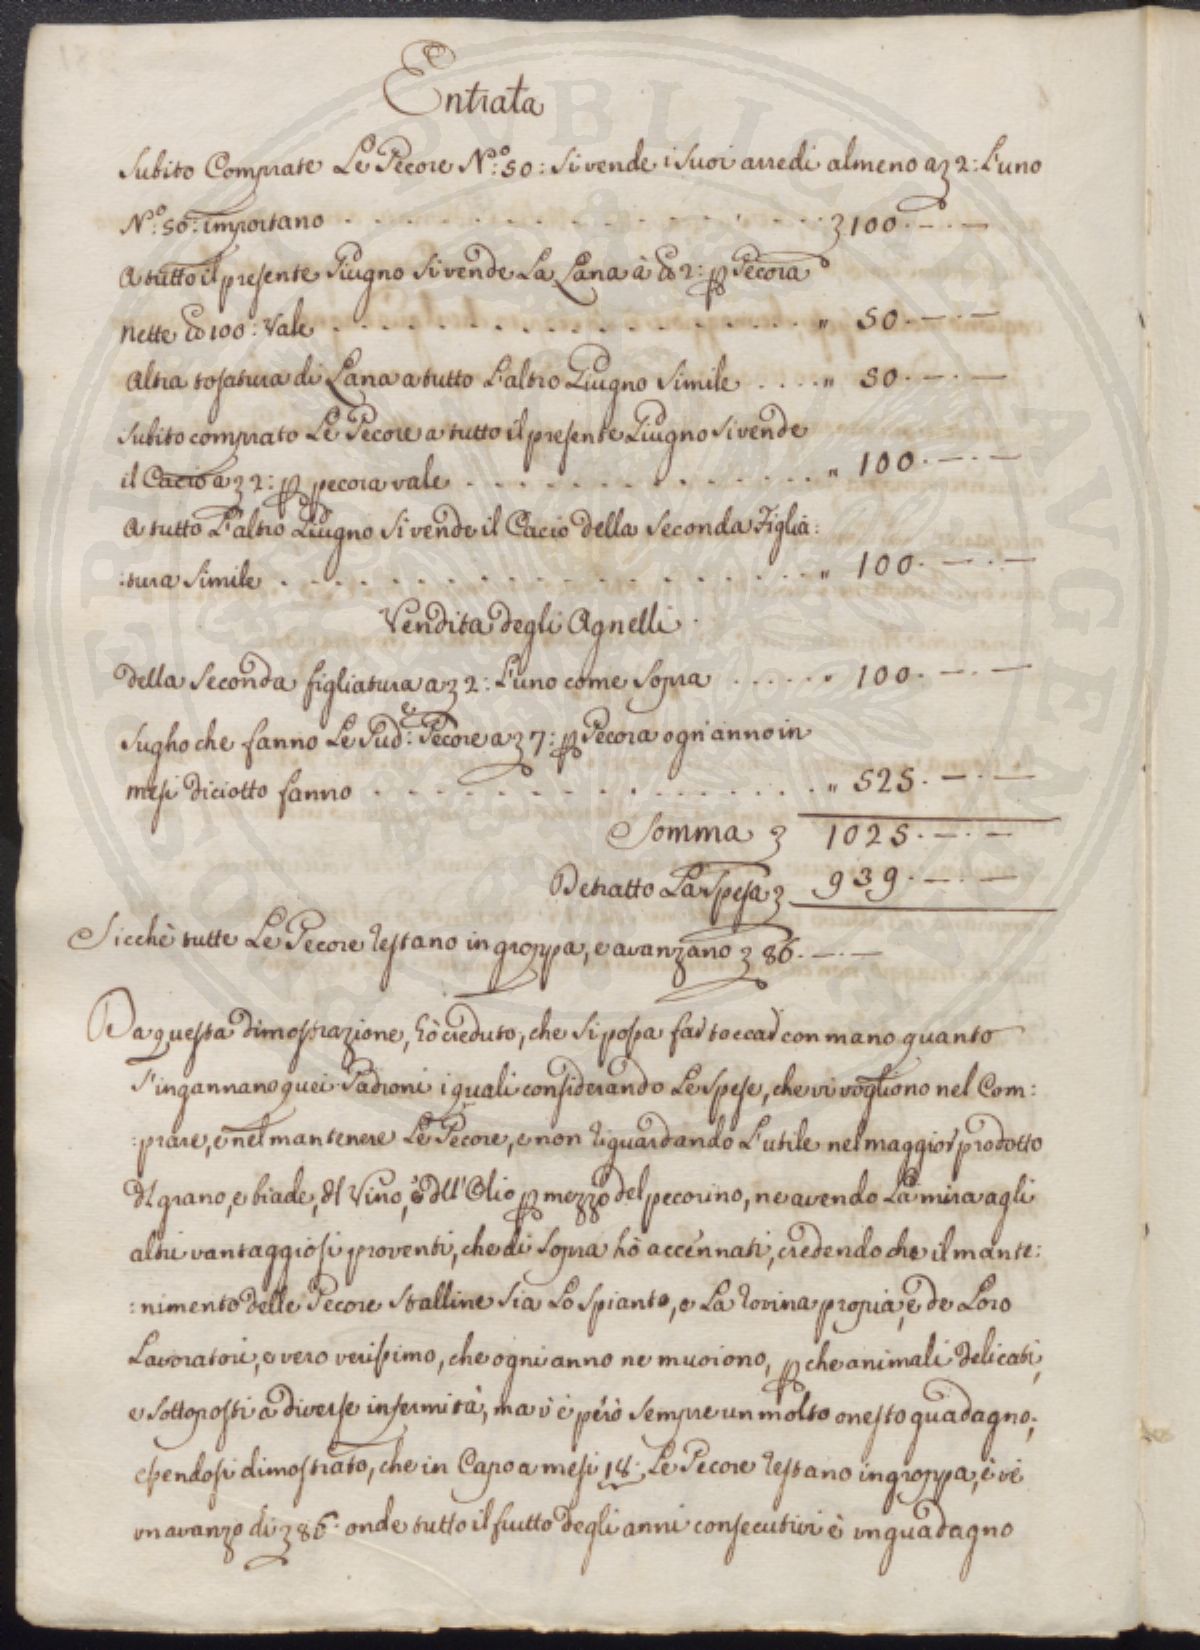 Entrata
Subito Comprate Le Pecore N.º: 50: si vende i suoi arredi almeno a ʒ 2: L'uno
N.º: 50: importano . . . . . . . . . . . . ʒ 100. — . —
A tutto il presente Giugno si vende La Lana à ℔ 2: ꝑ Pecora
nette ℔ 100: Vale . . . . . . . . . . . . „ 50. — . —
Altra tosatura di Lana a tutto L'altro Giugno Simile . . . . „ 50. — . —
Subito comprato Le Pecore a tutto il presente Giugno si vende
il Cacio a ʒ 2: ꝑ pecora vale . . . . . . . . . . . . „ 100. — . —
A tutto L'altro Giugno si vende il Cacio della Seconda Figlia:
:tura Simile . . . . . . . . . . . . „ 100. — . —
Vendita degli Agnelli
della Seconda figliatura a ʒ 2: L'uno come Sopra . . . . . „ 100. — . —
Sugho che fanno Le Sud.e: Pecore a ʒ 7: ꝑ Pecora ogn'anno in
mesi diciotto fanno . . . . . . . . . . . . „ 525. — . —
Somma ʒ 1025. — . —
Detratto La Spesa ʒ 939. — . —
Sicchè tutte Le Pecore restano in groppa, e avanzano ʒ 86. — . —
Da questa dimostrazione, hò creduto, che si possa far toccar con mano quanto
S'ingannano quei Padroni i quali considerando Le Spese, che vi vogliono nel Com:
:prare, e nel mantenere Le Pecore, e non riguardando L'utile nel maggior prodotto
dl grano, e biade, dl Vino, e dll'Olio ꝑ mezzo del pecorino, ne avendo La mira agli
altri vantaggiosi proventi, che di Sopra hò accennati, credendo che il mante:
:nimento delle Pecore Stalline Sia Lo Spianto, e La rovina propria, e de Loro
Lavoratori, e vero verissimo, che ogni anno ne muoiono, ꝑche animali delicati,
e Sottoposti a diverse infermità, ma v'è però Sempre un molto onesto guadagno,
essendosi dimostrato, che in Capo a mesi 18: Le Pecore restano in groppa, e vi è
un avanzo di ʒ 86. onde tutto il frutto degli anni consecutivi è un guadagno